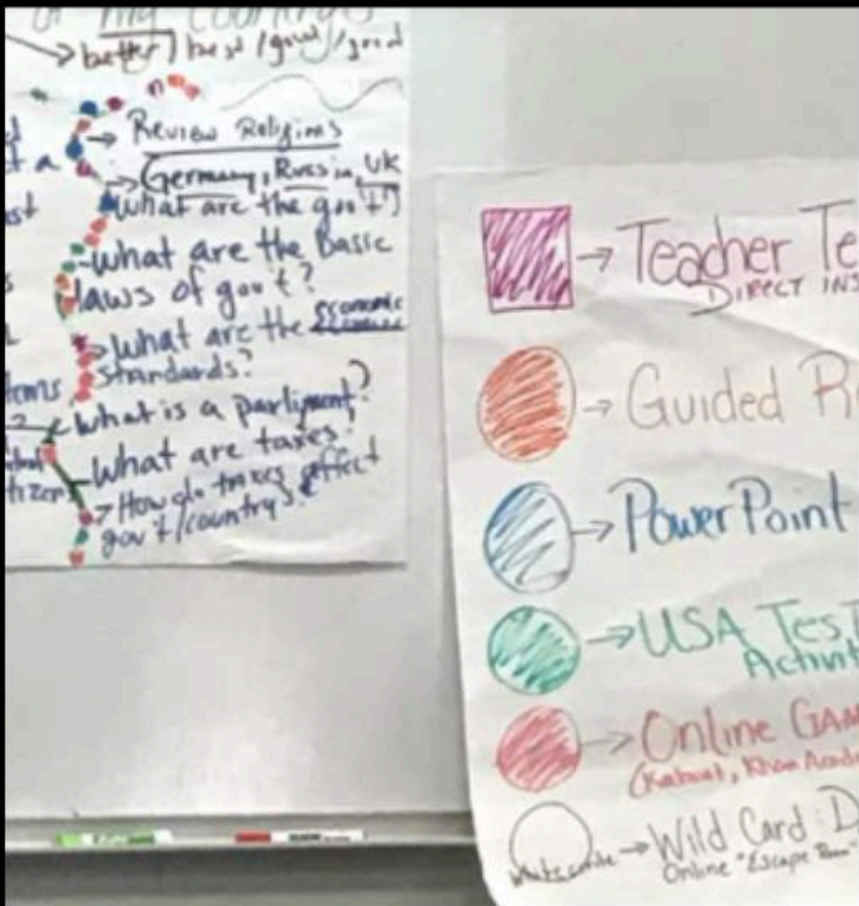 of my country
→ better / best / good / good
→ Review Religions
→ Germany, Russia, UK
What are the gov't?
- What are the Basic
laws of gov't?
→ What are the Economic
standards?
What is a parliment?
- What are taxes?
→ How do taxes effect
gov't/country?
st
tems
tizen
→ Teacher Te
DIRECT INS
→ Guided R
→ PowerPoint
→ USA Test
Activit
→ Online GAM
(Kahoot, Khan Acade
→ Wild Card: D
Online "Escape Room"